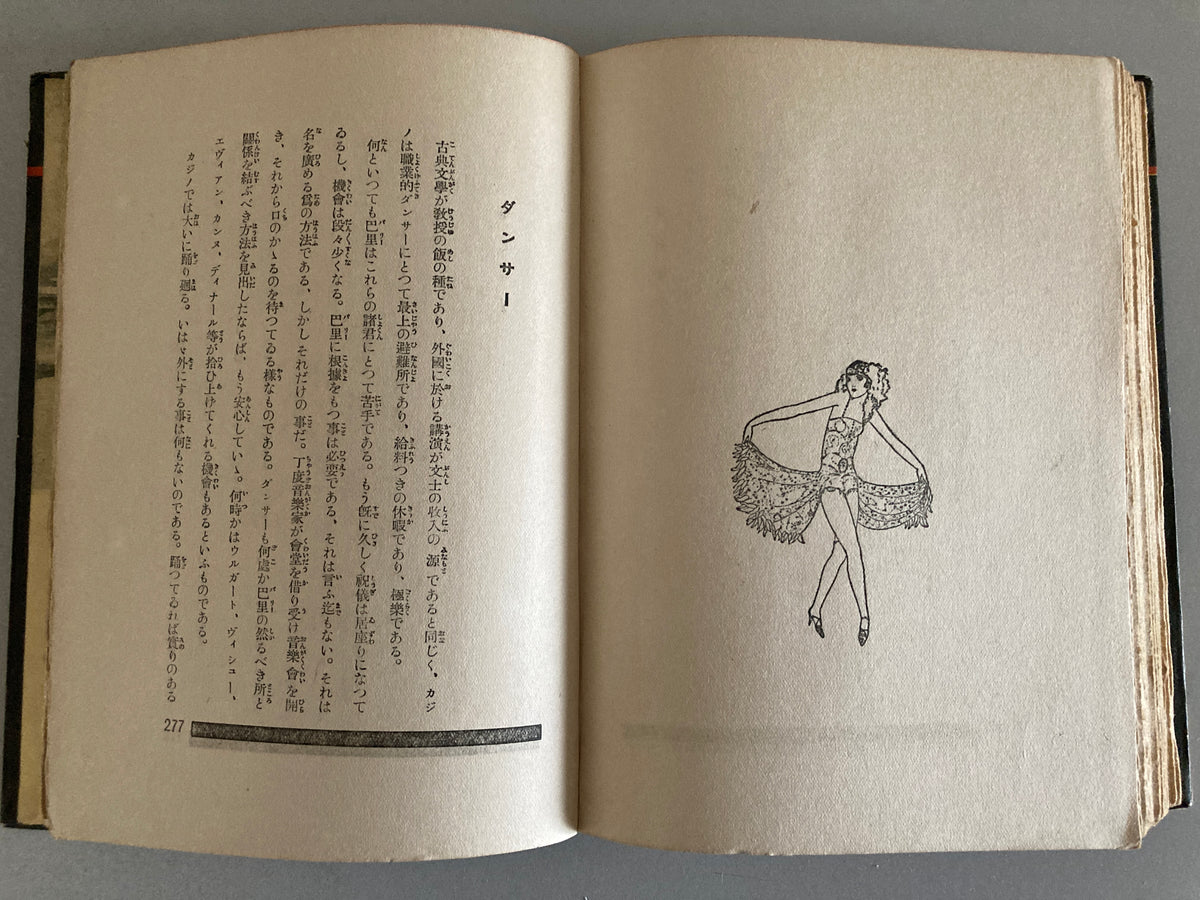 ダンサー
古典文學が敎授の飯の種であり、外國に於ける講演が文士の收入の源であると同じく、カジ
ノは職業的ダンサーにとつて最上の避難所であり、給料つきの休暇であり、極樂である。
何といつても巴里はこれらの諸君にとつて苦手である。もう既に久しく祝儀は居座りになつて
ゐるし、機會は段々少くなる。巴里に根據をもつ事は必要である、それは言ふ迄もない。それは
名を廣める爲の方法である、しかしそれだけの事だ。丁度音樂家が會堂を借り受け音樂會を開
き、それから口のかゝるのを待つてゐる樣なものである。ダンサーも何處か巴里の然るべき所と
關係を結ぶべき方法を見出したならば、もう安心していゝ。何時かはウルガート、ヴィシュー、
エヴィアン、カンヌ、ディナール等が拾ひ上げてくれる機會もあるといふものである。
カジノでは大いに踊り廻る。いはゞ外にする事は何もないのである。踊つてゐれば實りのある
277